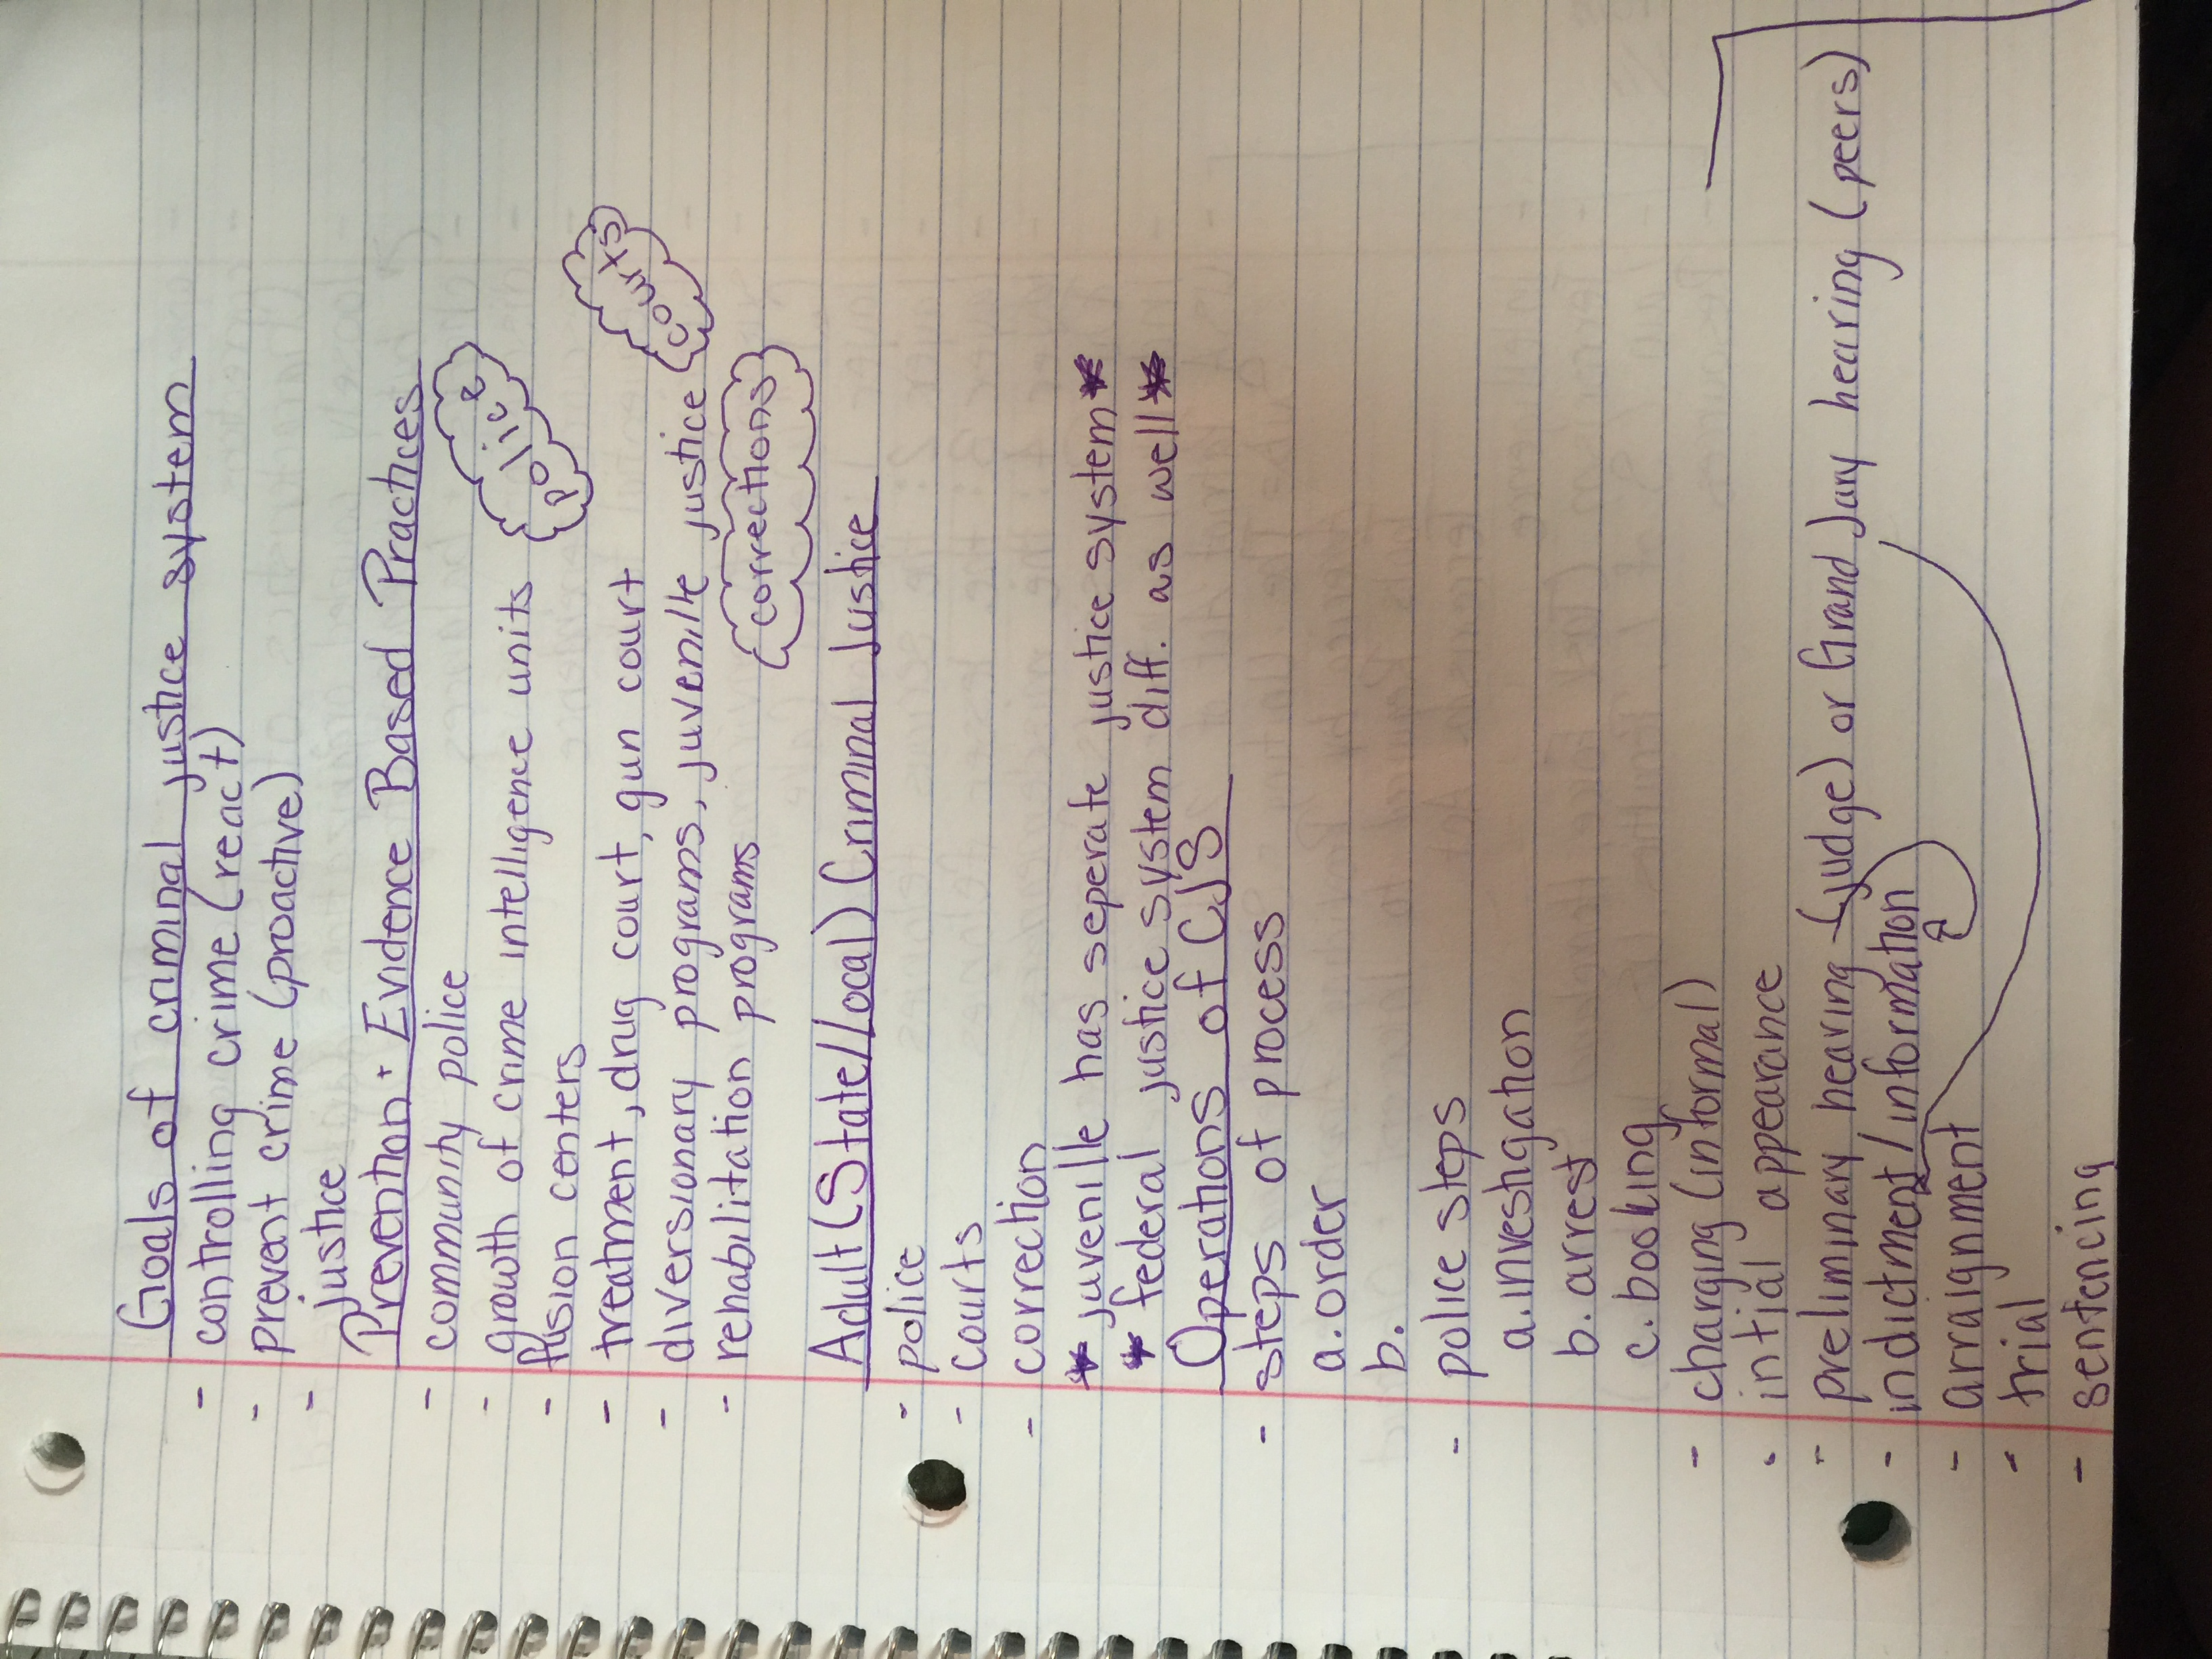 Goals of criminal justice system
- controlling crime (react)
- prevent crime (proactive)
- justice
Prevention + Evidence Based Practices
- community police
- growth of crime intelligence units police
- fusion centers
- treatment, drug court, gun court courts
- diversionary programs, juvenile justice
- rehabilitation programs corrections
Adult (State/Local) Criminal Justice
- police
- courts
- correction
* juvenille has seperate justice system *
* federal justice system diff. as well *
Operations of CJS
- steps of process
a. order
b.
- police steps
a. investigation
b. arrest
c. booking
- charging (informal)
- intial appearance
- preliminary hearing (judge) or Grand Jury hearing (peers)
- indictment/information
- arraignment
- trial
- sentencing